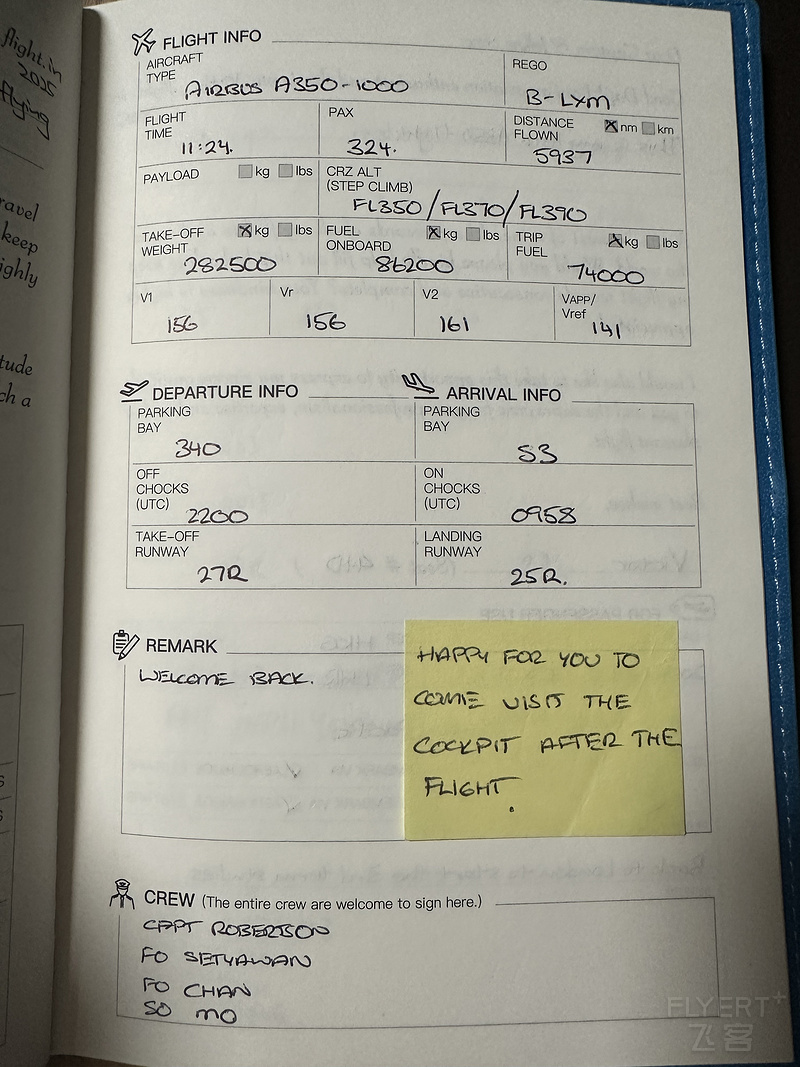 flight in
2025
flying
ravel
keep
ighly
tude
ch a
FLIGHT INFO
AIRCRAFT TYPE AIRBUS A350-1000
REGO B-LXM
FLIGHT TIME 11:24.
PAX 324.
DISTANCE FLOWN nm km 5937
PAYLOAD kg lbs
CRZ ALT (STEP CLIMB) FL350/FL370/FL390
TAKE-OFF WEIGHT kg lbs 282500
FUEL ONBOARD kg lbs 86200
TRIP FUEL kg lbs 74000
V1 156
Vr 156
V2 161
VAPP/ Vref 141
DEPARTURE INFO
PARKING BAY 340
OFF CHOCKS (UTC) 2200
TAKE-OFF RUNWAY 27R
ARRIVAL INFO
PARKING BAY S3
ON CHOCKS (UTC) 0958
LANDING RUNWAY 25R.
REMARK
WELCOME BACK.
HAPPY FOR YOU TO
COME VISIT THE
COCKPIT AFTER THE
FLIGHT.
CREW (The entire crew are welcome to sign here.)
CAPT ROBERTSON
FO SETYAWAN
FO CHAN
SO MO
FLYERT+
飞客